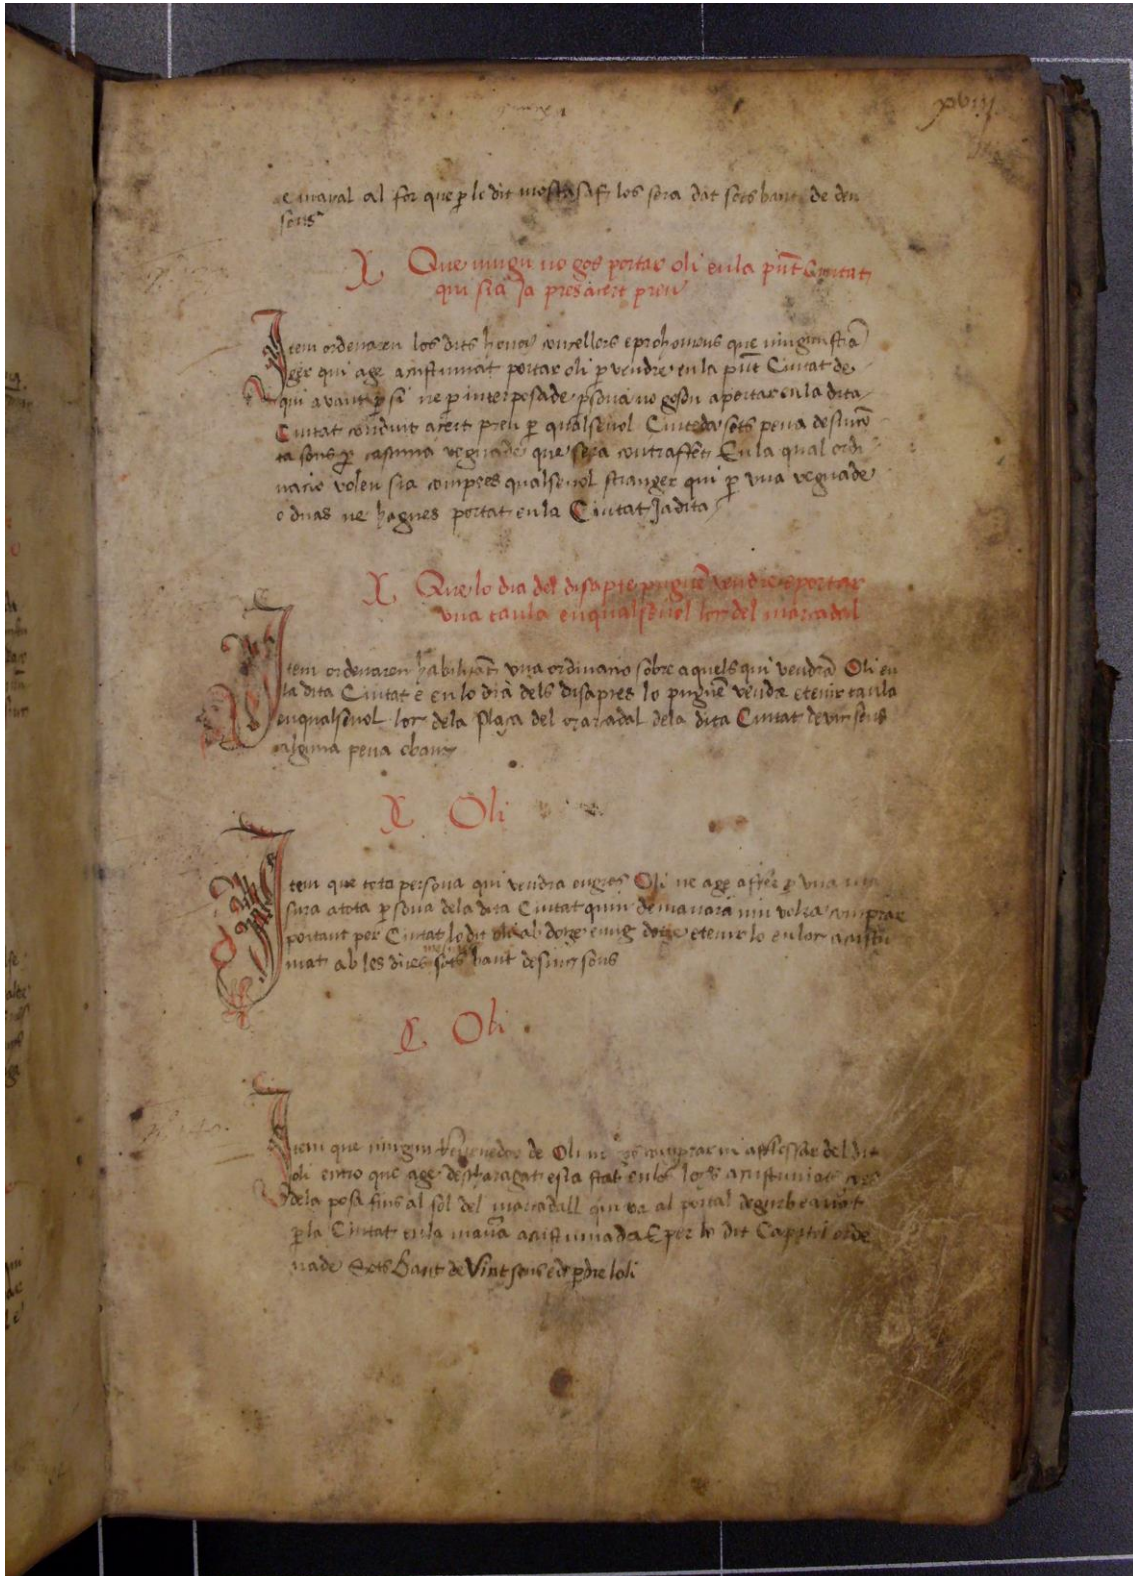 xviij
e maral al for que p lo dit mostasaf los sera dat sots bant de deu
sous
Que ningu no gos portar oli en la pñt Ciutat
qui sia Ja pres a cert preu
Item ordenaren los dits honor consellers e prohomens que ningun stra
ger qui age acustumat portar oli p vendre en la pñt Ciutat de
qui avant p si ne p interposade psona no gosen aportar en la dita
Ciutat convint a cert preu p qualsevol Ciuteda sots pena de sinco
ta sous p cascuna veguade que sera contrafet En la qual ordi
nacio volen sia compres qualsevol stranger qui p una veguade
o duas ne hagues portat en la Ciutat Ja dita
Que lo dia del disapte puguẽ vendre e portar
una taula en qualsevol loc del marcadal
Item ordenaren habilitãt una ordinacio sobre aquels qui vendrã Oli en
la dita Ciutat e en lo dia dels disaptes lo puguẽ vendre e tenir taula
en qualsevol loc de la plaça del marcadal de la dita Ciutat de vic sens
alguna pena o bant
Oli
Item que tota persona qui vendra en gros Oli ne age affer p una
sura a tota psona de la dita Ciutat quin demanara nin volra comprar
portant per Ciutat lo dit oli ab dotze e mig dotze e tenir lo en loc acustu
mat ab les dites sots bant de sinc sous
Oli
Item que ningun revenedor de Oli no gos comprar ni del dit
oli entro que age descharagat e sia stat en los locs acustumats
de la posa fins al sol del marcadall qui va al portal de gurb e anãt
p la Ciutat en la manã acustumada E per lo dit Capitol orde
nade Sots Bant de Vint sous e de pdre loli